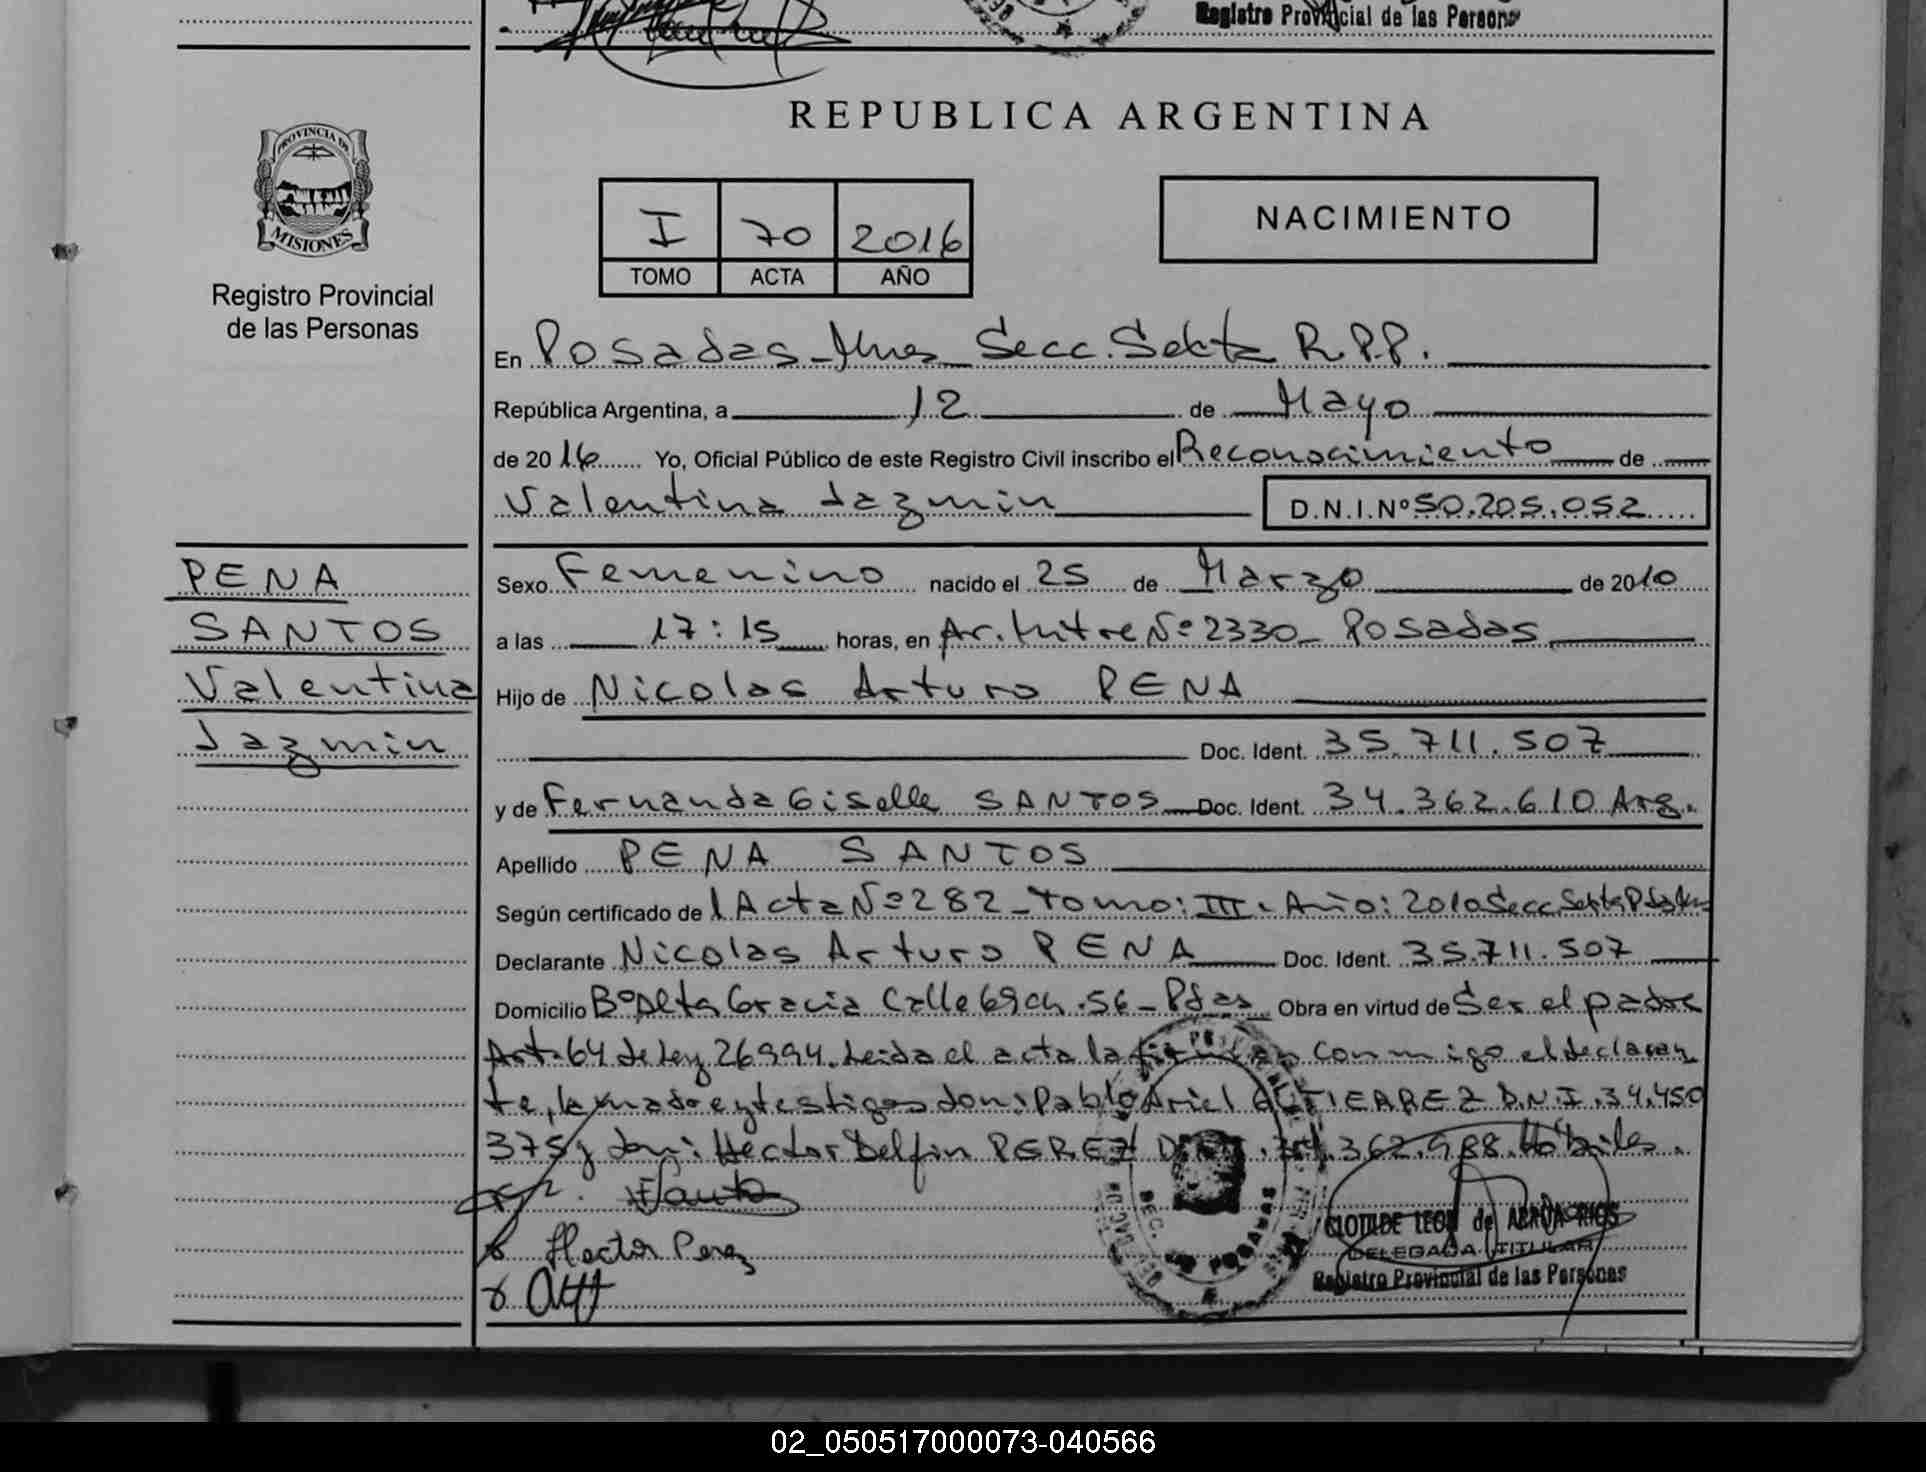 Registro Provincial de las Personas
PROVINCIA DE
MISIONES
Registro Provincial
de las Personas
REPUBLICA ARGENTINA
I 70 2016
TOMO ACTA AÑO
NACIMIENTO
En Posadas - Mnes Secc. Sexta R.P.P.
República Argentina, a 12 de Mayo
de 2016 Yo, Oficial Público de este Registro Civil inscribo el Reconocimiento de
Valentina Jazmin D.N.I.Nº 50.205.052
PENA
SANTOS
Valentina
Jazmin
Sexo Femenino nacido el 25 de Marzo de 2010
a las 17:15 horas, en Av. Mitre Nº 2330 - Posadas
Hijo de Nicolas Arturo PENA
Doc. Ident. 35.711.507
y de Fernanda Giselle SANTOS Doc. Ident. 34.362.610 Arg.
Apellido PENA SANTOS
Según certificado de l Acta Nº 282 - Tomo: III - Año: 2010 Secc. Sexta
Declarante Nicolas Arturo PENA Doc. Ident. 35.711.507
Domicilio Bº Alta Gracia Calle 69 ch. 56 - Pdas Obra en virtud de Ser el padre
Art. 64 de Ley 26994. Leida el acta la firman conmigo el declaran
te, la madre y testigos don: Pablo Ariel GUTIERREZ D.N.I. 34.450
375 y don: Hector Delfin PEREZ D.N.I. 362.988. Hábiles.
Hector Perez
CLOTILDE LEON de
DELEGADA TITULAR
Registro Provincial de las Personas
02_050517000073-040566